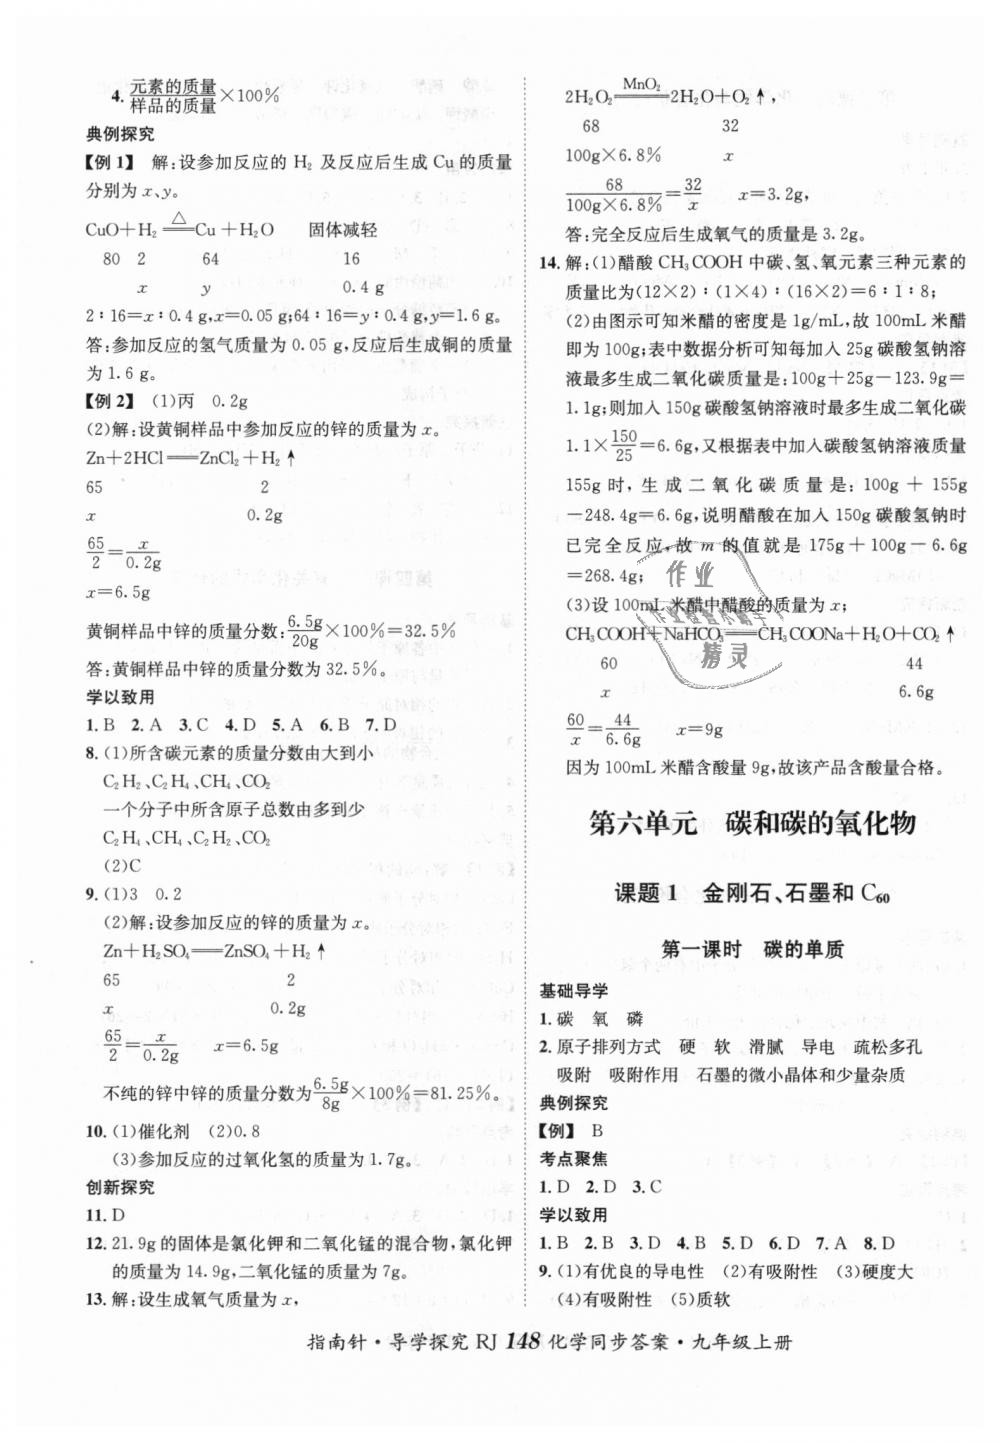 4. 元素的质量/样品的质量×100%
典例探究
【例 1】 解:设参加反应的 H₂ 及反应后生成 Cu 的质量
分别为 x、y。
CuO+H₂ =△= Cu+H₂O 固体减轻
80 2 64 16
x y 0.4 g
2∶16=x∶0.4 g,x=0.05 g;64∶16=y∶0.4 g,y=1.6 g。
答:参加反应的氢气质量为 0.05 g,反应后生成铜的质量
为 1.6 g。
【例 2】 (1)丙 0.2g
(2)解:设黄铜样品中参加反应的锌的质量为 x。
Zn+2HCl══ZnCl₂+H₂↑
65 2
x 0.2g
65/2=x/0.2g
x=6.5g
黄铜样品中锌的质量分数:6.5g/20g×100%=32.5%
答:黄铜样品中锌的质量分数为 32.5%。
学以致用
1. B 2. A 3. C 4. D 5. A 6. B 7. D
8. (1)所含碳元素的质量分数由大到小
C₂H₂、C₂H₄、CH₄、CO₂
一个分子中所含原子总数由多到少
C₂H₄、CH₄、C₂H₂、CO₂
(2)C
9. (1)3 0.2
(2)解:设参加反应的锌的质量为 x。
Zn+H₂SO₄══ZnSO₄+H₂↑
65 2
x 0.2g
65/2=x/0.2g x=6.5g
不纯的锌中锌的质量分数为6.5g/8g×100%=81.25%。
10. (1)催化剂 (2)0.8
(3)参加反应的过氧化氢的质量为 1.7g。
创新探究
11. D
12. 21.9g 的固体是氯化钾和二氧化锰的混合物,氯化钾
的质量为 14.9g,二氧化锰的质量为 7g。
13. 解:设生成氧气质量为 x,
2H₂O₂ =MnO₂= 2H₂O+O₂↑,
68 32
100g×6.8% x
68/100g×6.8%=32/x x=3.2g,
答:完全反应后生成氧气的质量是 3.2g。
14. 解:(1)醋酸 CH₃COOH 中碳、氢、氧元素三种元素的
质量比为(12×2)∶(1×4)∶(16×2)=6∶1∶8;
(2)由图示可知米醋的密度是 1g/mL,故 100mL 米醋
即为 100g;表中数据分析可知每加入 25g 碳酸氢钠溶
液最多生成二氧化碳质量是:100g+25g-123.9g=
1.1g;则加入 150g 碳酸氢钠溶液时最多生成二氧化碳
1.1×150/25=6.6g,又根据表中加入碳酸氢钠溶液质量
155g 时,生成二氧化碳质量是:100g+155g
-248.4g=6.6g,说明醋酸在加入 150g 碳酸氢钠时
已完全反应,故 m 的值就是 175g+100g-6.6g
=268.4g;
(3)设 100mL 米醋中醋酸的质量为 x;
CH₃COOH+NaHCO₃══CH₃COONa+H₂O+CO₂↑
60 44
x 6.6g
60/x=44/6.6g x=9g
因为 100mL 米醋含酸量 9g,故该产品含酸量合格。
第六单元 碳和碳的氧化物
课题 1 金刚石、石墨和 C₆₀
第一课时 碳的单质
基础导学
1. 碳 氧 磷
2. 原子排列方式 硬 软 滑腻 导电 疏松多孔
吸附 吸附作用 石墨的微小晶体和少量杂质
典例探究
【例】 B
考点聚焦
1. D 2. D 3. C
学以致用
1. B 2. B 3. D 4. B 5. D 6. D 7. A 8. D
9. (1)有优良的导电性 (2)有吸附性 (3)硬度大
(4)有吸附性 (5)质软
指南针·导学探究 RJ 148 化学同步答案·九年级上册
作业
精灵